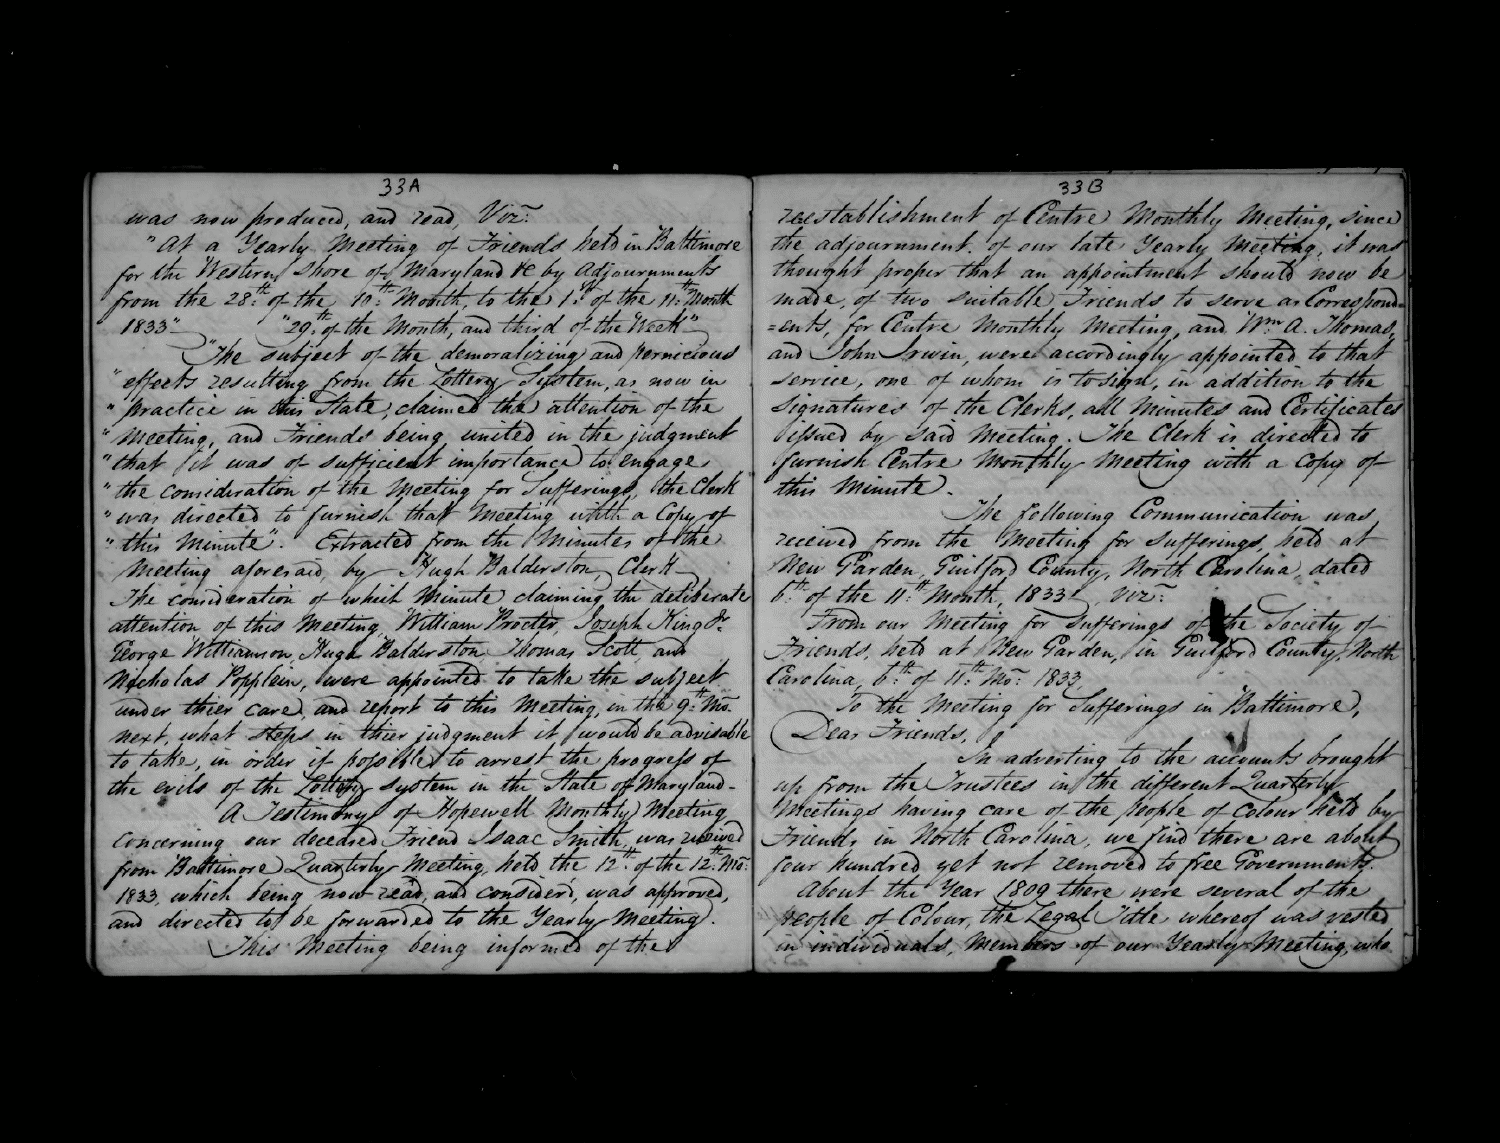 33A
was now produced, and read, Viz:
"At a Yearly Meeting of Friends held in Baltimore
for the Western Shore of Maryland &c by Adjournments
from the 28th of the 10th Month, to the 1st of the 11th Month
1833" "29th of the Month, and third of the Week"
"The subject of the demoralizing and pernicious
" effects resulting from the Lottery System, as now in
" practice in this State, claimed the attention of the
" Meeting, and Friends being united in the judgment
" that it was of sufficient importance to engage
" the consideration of the Meeting for Sufferings, the Clerk
" was directed to furnish that Meeting with a Copy of
" this Minute". Extracted from the Minutes of the
Meeting aforesaid, by Hugh Balderston, Clerk
The consideration of which Minute claiming the deliberate
attention of this Meeting, William Procter, Joseph King Jr.
George Williamson, Hugh Balderston Thomas Scott, and
Nicholas Popplein, were appointed to take the subject
under thier care, and report to this Meeting, in the 9th Mo.
next, what steps in thier judgment it would be advisable
to take, in order if possible to arrest the progress of
the evils of the Lottery system in the State of Maryland-
A Testimony of Hopewell Monthly Meeting
concerning our deceased Friend Isaac Smith, was received
from Baltimore Quarterly Meeting, held the 12th of the 12th Mo:
1833, which being now read, and considerd, was approved,
and directed to be forwarded to the Yearly Meeting.
This Meeting being informed of the
33B
reestablishment of Centre Monthly Meeting, since
the adjournment of our late Yearly Meeting, it was
thought proper that an appointment should now be
made, of two suitable Friends to serve as Correspond=
=ents, for Centre Monthly Meeting, and Wm. A. Thomas,
and John Irwin, were accordingly appointed to that
service, one of whom is to sign, in addition to the
Signatures of the Clerks, all Minutes and Certificates
issued by said Meeting. The Clerk is directed to
furnish Centre Monthly Meeting with a Copy of
this Minute.
The following Communication was
received from the Meeting for Sufferings, held at
New Garden, Guilford County, North Carolina, dated
6th of the 11th Month, 1833, Viz:
From our Meeting for Sufferings of the Society of
Friends, held at New Garden, in Guilford County, North
Carolina, 6th of 11th Mo: 1833
To the Meeting for Sufferings in Baltimore,
Dear Friends,
In adverting to the accounts brought
up from the Trustees in the different Quarterly
Meetings having care of the people of colour held by
Friends in North Carolina, we find there are about
four hundred yet not removed to free Governments.
About the Year 1809 there were several of the
people of Colour, the Legal Title whereof was vested
in individuals, Members of our Yearly Meeting, who